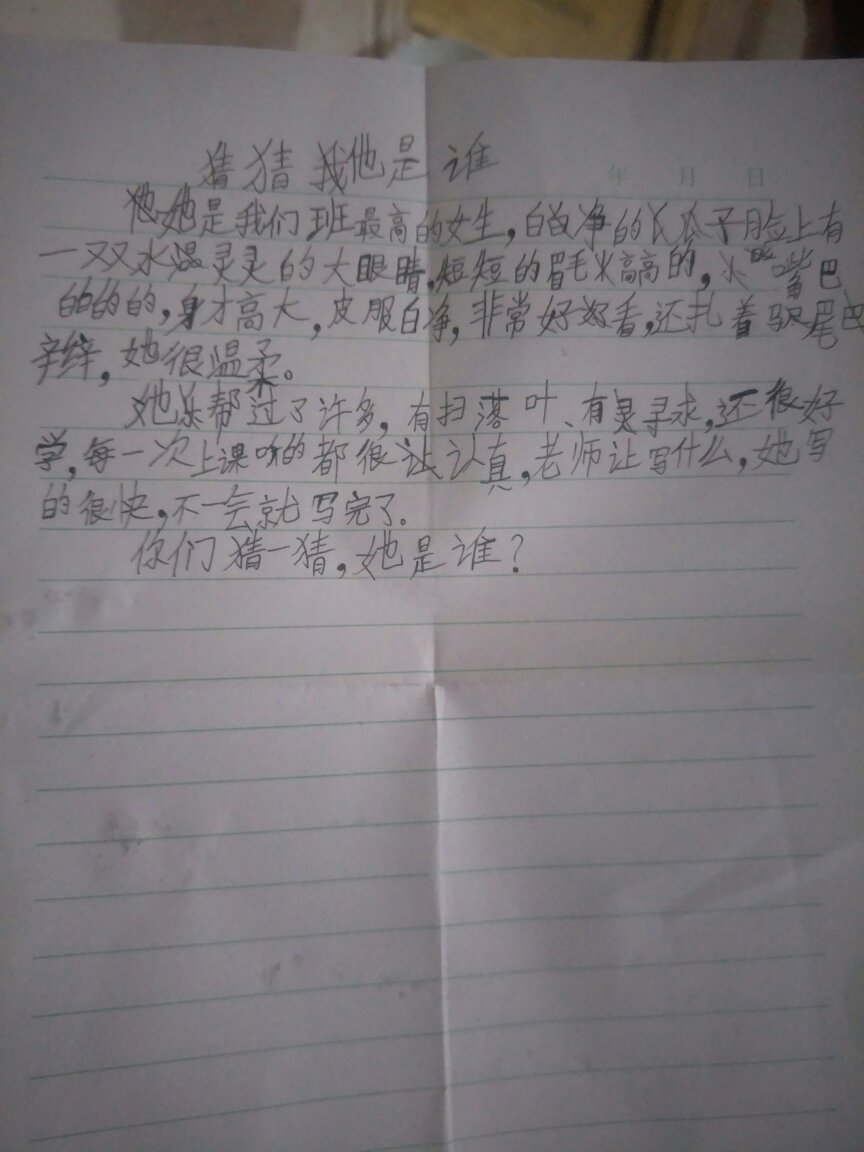 猜猜他是谁
年 月 日
她是我们班最高的女生,白净的瓜子脸上有
一双水温灵灵的大眼睛,短短的眉毛高高的,小嘴巴
的的,身才高大,皮服白净,非常好好看,还扎着尾巴
辛,她很温柔。
她乐帮过了许多,有扫落叶、有灵寻求,还很好
学,每一次上课的都很认真,老师让写什么,她写
的很快,不一会就写完了。
你们猜一猜,她是谁?